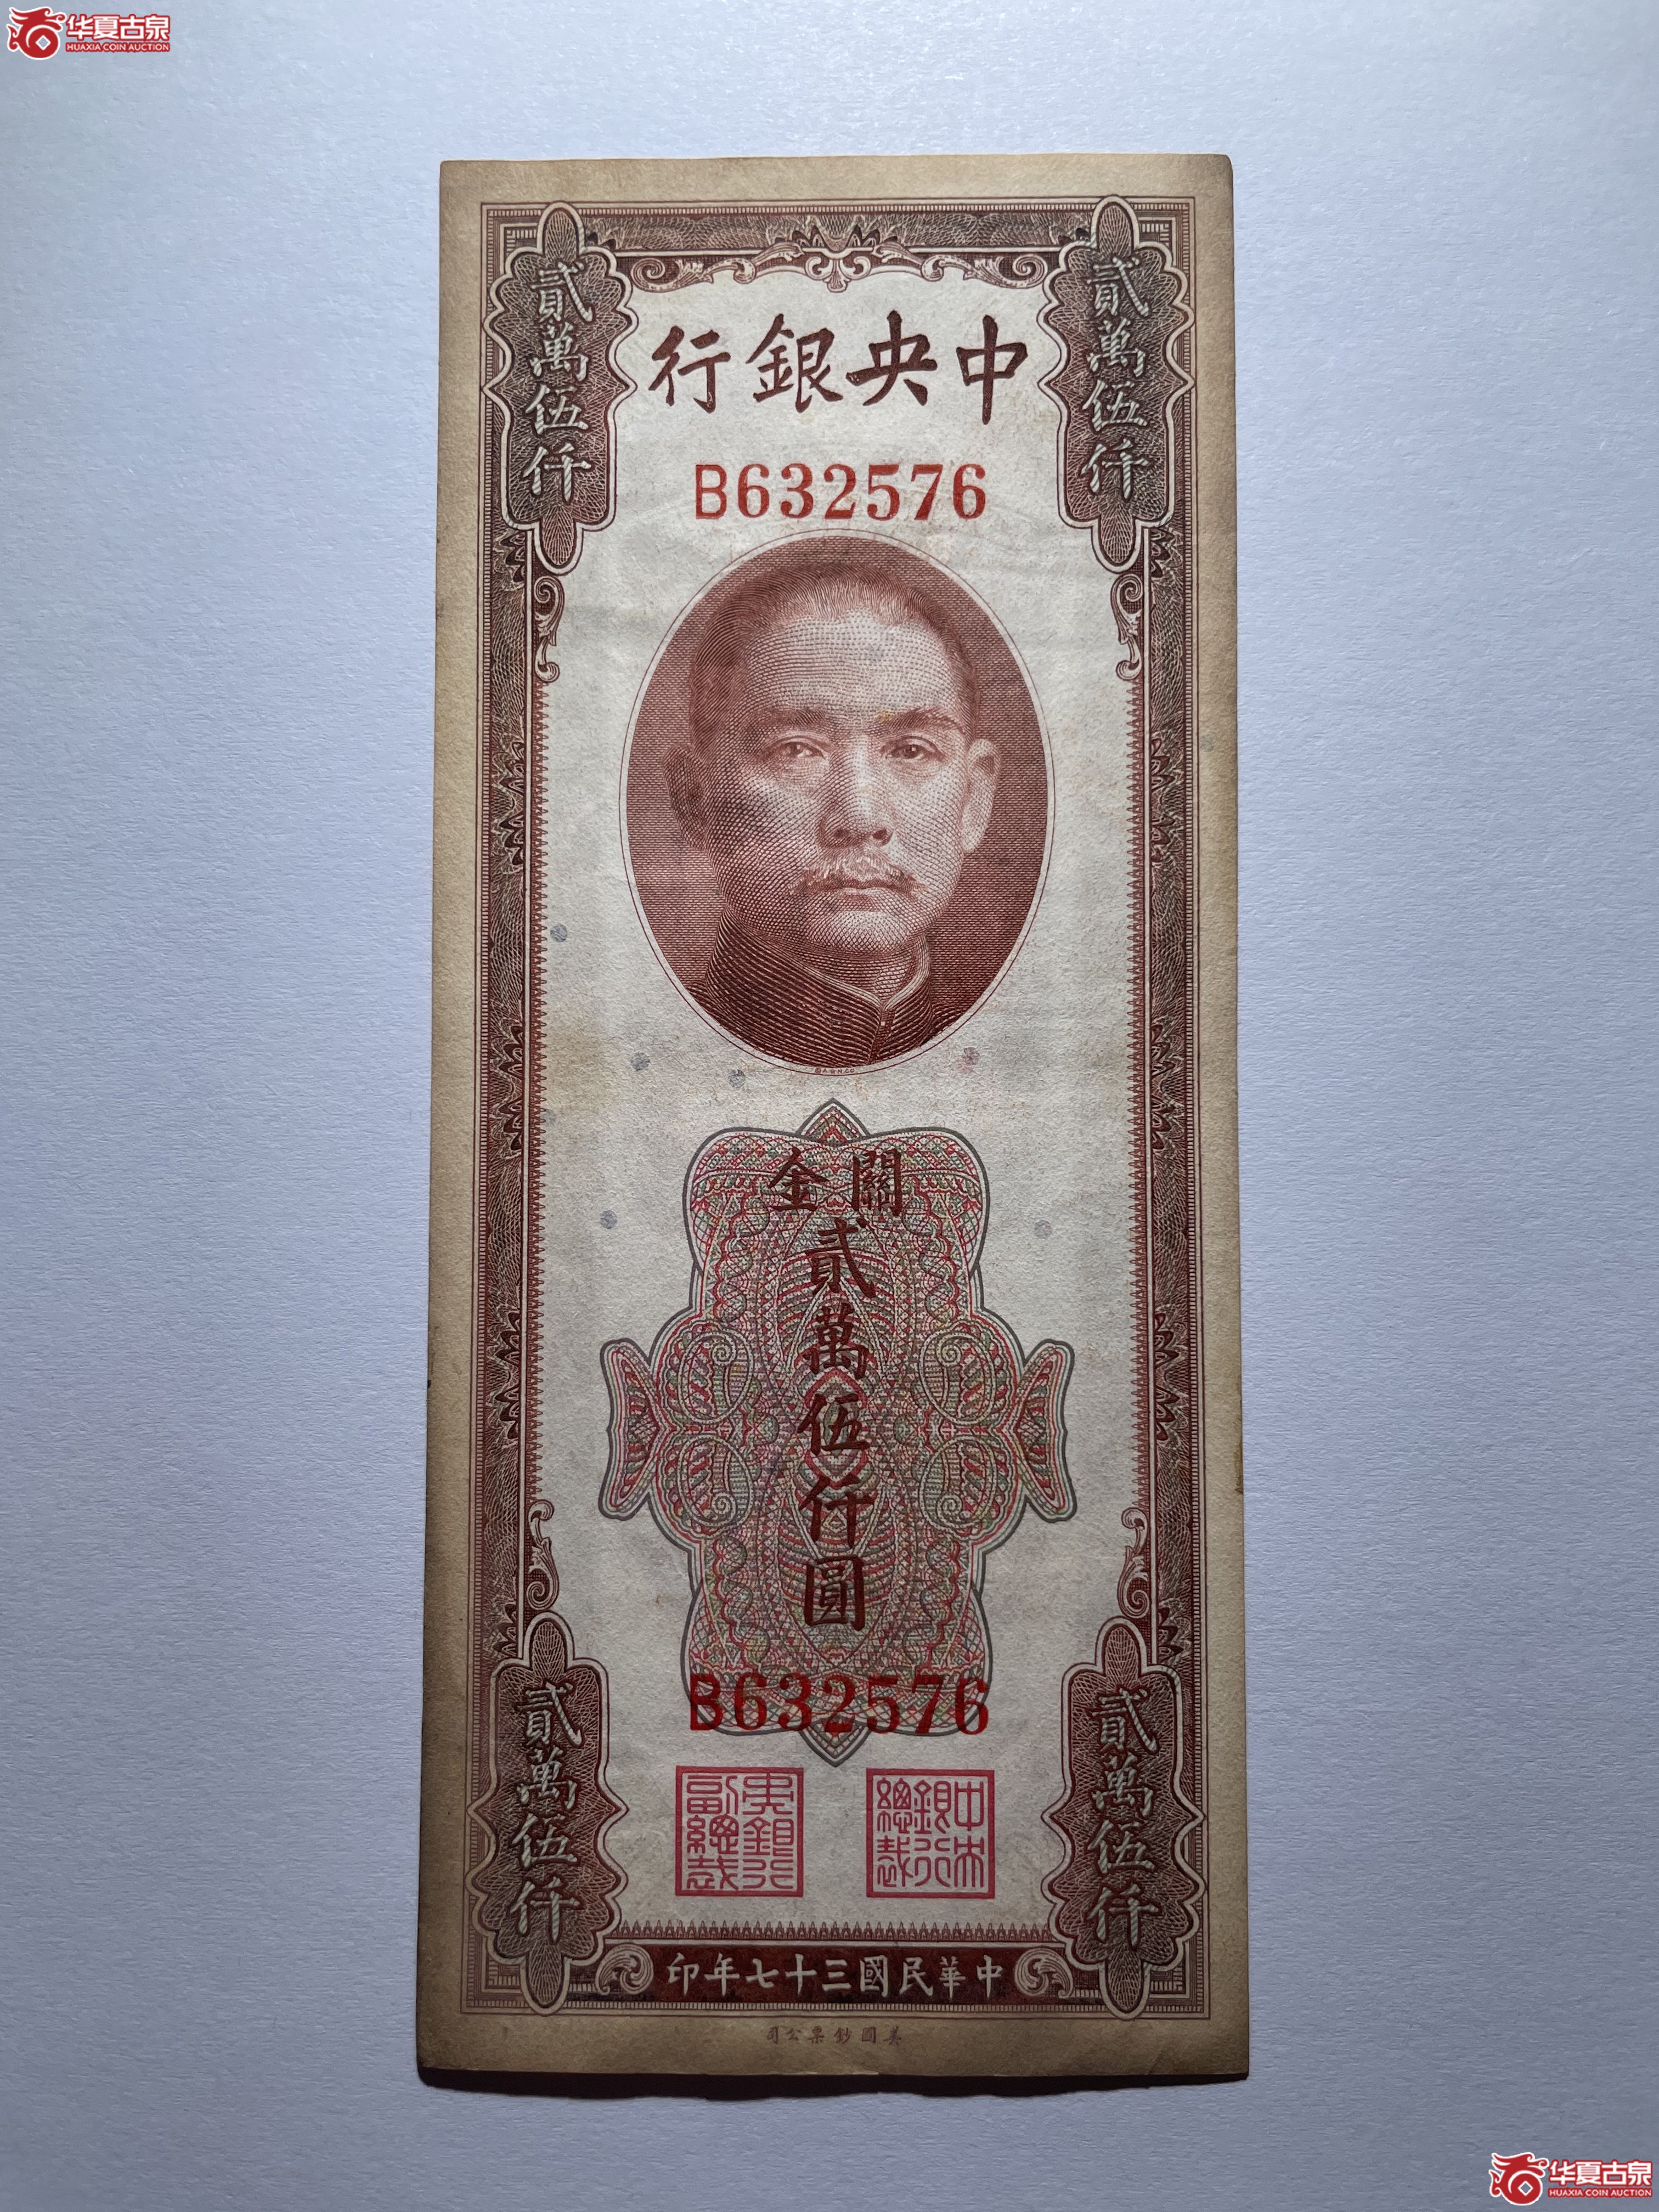 华夏古泉
HUAXIA COIN AUCTION
貳萬伍仟
貳萬伍仟
中央銀行
B632576
關金
貳萬伍仟圓
B632576
中央銀行總裁
央銀行副總裁
貳萬伍仟
貳萬伍仟
中華民國三十七年印
美國鈔票公司
华夏古泉
HUAXIA COIN AUCTION